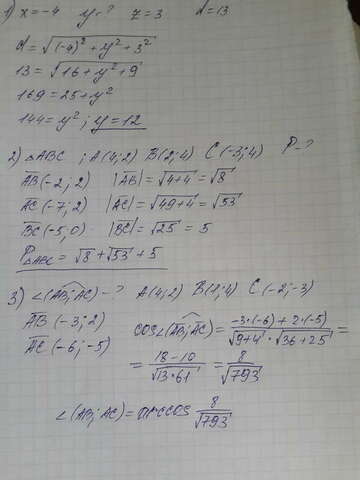 1) x=-4 y-? z=3 d=13
d=√((-4)²+y²+3²)
13=√(16+y²+9)
169=25+y²
144=y²; y=12
2) △ABC ; A(4;2) B(2;4) C(-3;4) P-?
AB(-2;2) |AB|=√(4+4)=√8
AC(-7;2) |AC|=√(49+4)=√53
BC(-5;0) |BC|=√25=5
P△ABC=√8+√53+5
3) ∠(AB;AC)-? A(4;2) B(1;4) C(-2;-3)
AB(-3;2)
AC(-6;-5)
cos∠(AB;AC)=(-3·(-6)+2·(-5))/(√(9+4)·√(36+25))=
=(18-10)/√(13·61)=8/√793
∠(AB;AC)=arccos 8/√793